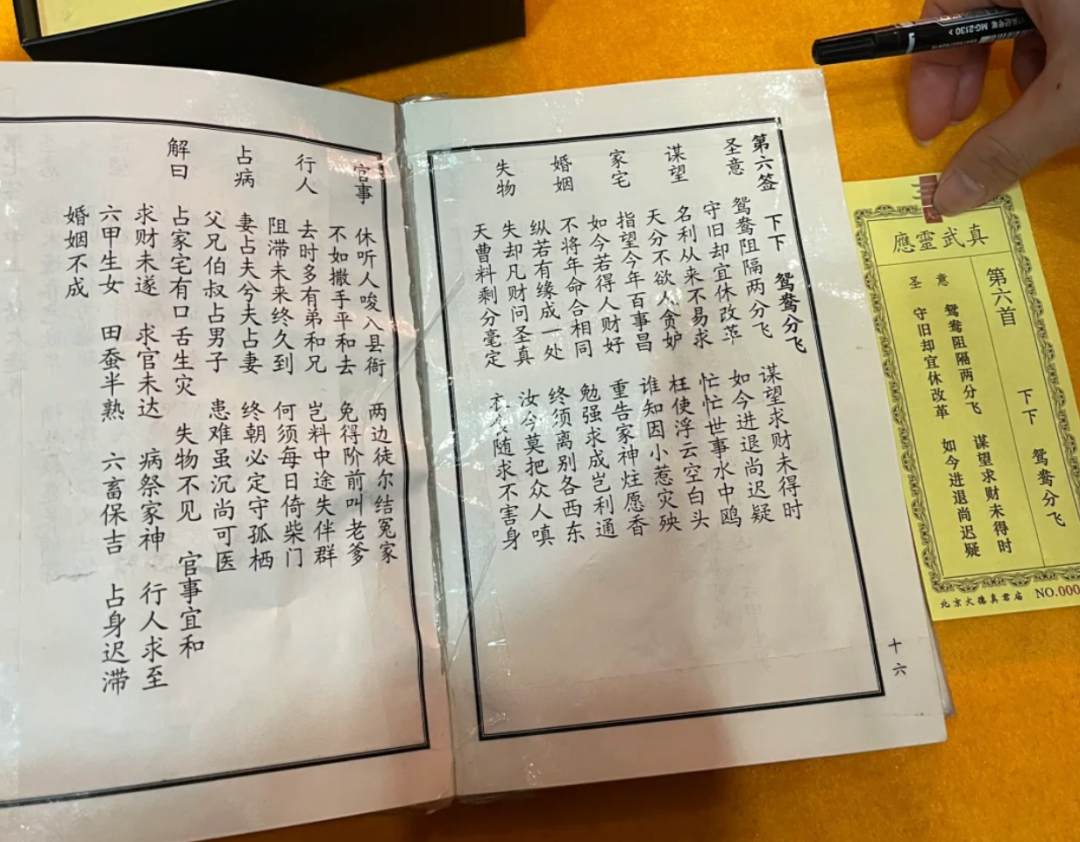 第六签 下下 鸳鸯分飞
圣意 鸳鸯阻隔两分飞 谋望求财未得时
守旧却宜休改革 如今进退尚迟疑
谋望 名利从来不易求 忙忙世事水中鸥
天分不欲人贪妒 枉使浮云空白头
家宅 指望今年百事昌 谁知因小惹灾殃
如今若得人财好 重告家神炷愿香
婚姻 不将年命合相同 勉强求成岂利通
纵若有缘成一处 终须离别各西东
失物 失却凡财问圣真 汝今莫把众人嗔
天曹料剩分毫定 衣食随求不害身
十六
官事 休听人唆入县衙 两边徒尔结冤家
不如撒手平和去 免得阶前叫老爹
行人 去时多有弟和兄 岂料中途失伴群
阻滞未来终久到 何须每日倚柴门
占病 妻占夫兮夫占妻 终朝必定守孤栖
父兄伯叔占男子 患难虽沉尚可医
解曰 占家宅有口舌生灾 失物不见 官事宜和
求财未遂 求官未达 病祭家神 行人求至
六甲生女 田蚕半熟 六畜保吉 占身迟滞
婚姻不成
應靈武真
第六首 下下 鸳鸯分飞
圣意 鸳鸯阻隔两分飞 谋望求财未得时
守旧却宜休改革 如今进退尚迟疑
北京火德真君庙 NO.000
MG-2130